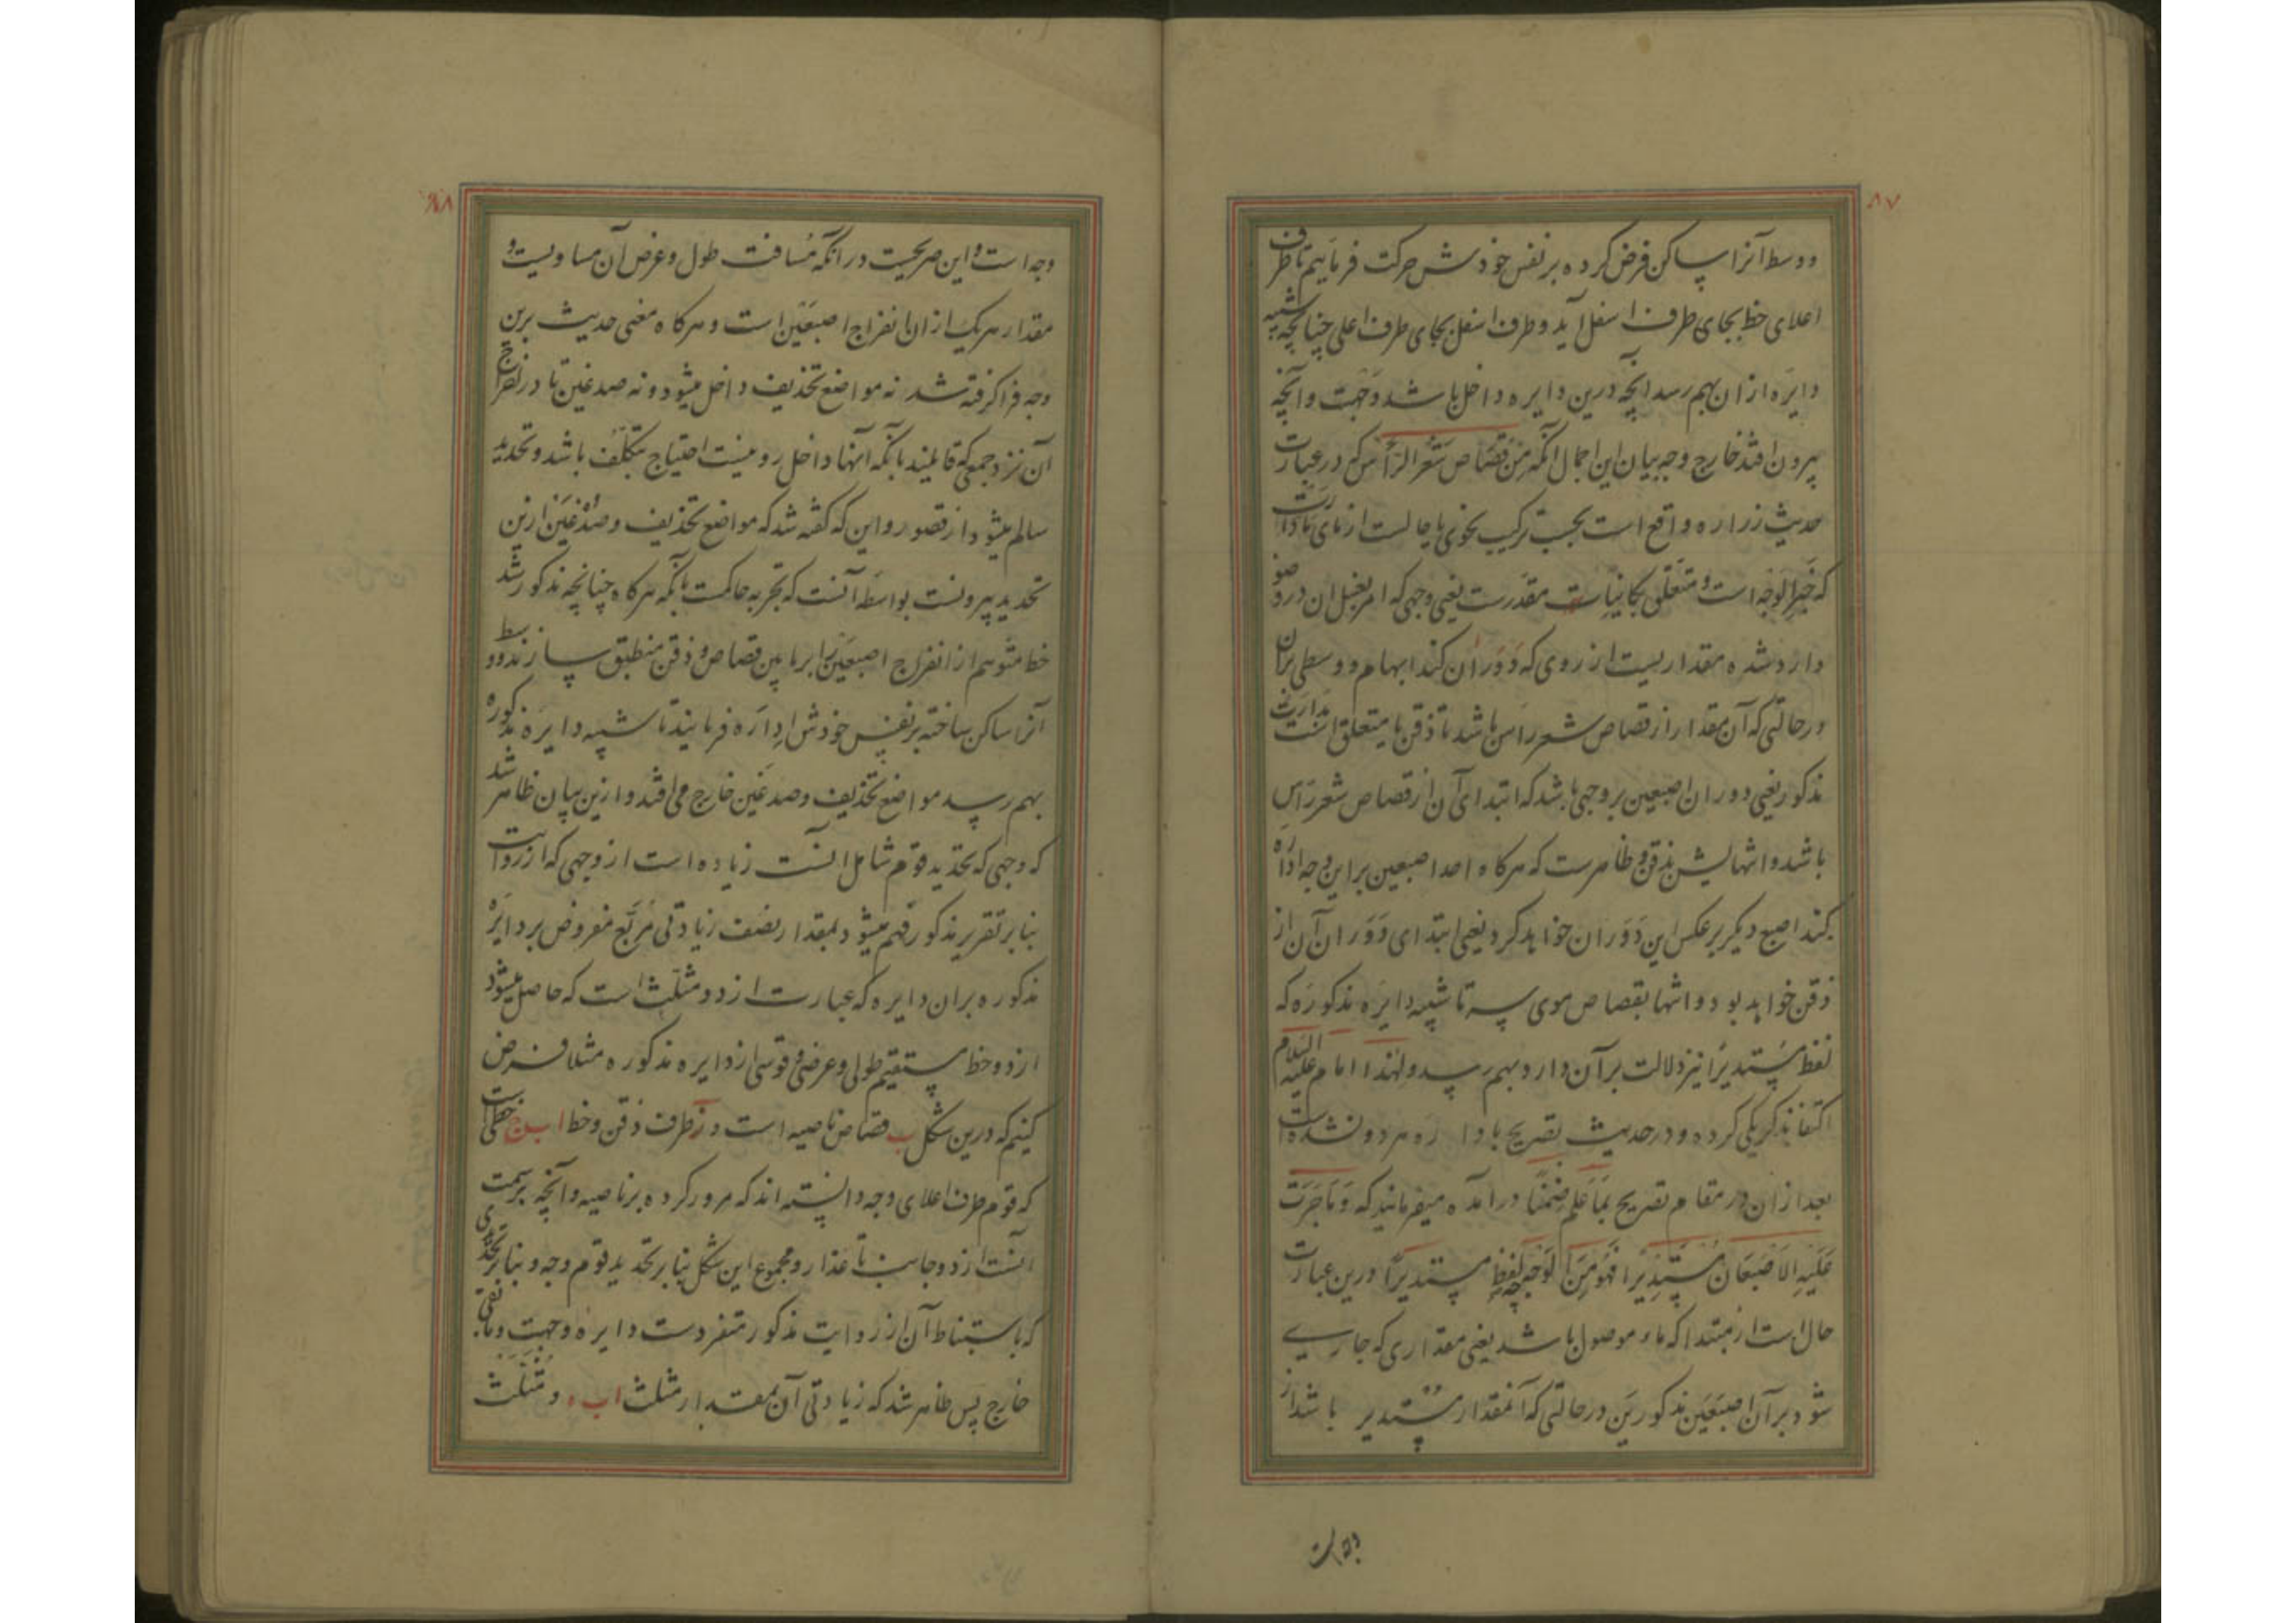 ۸۷
و وسط آنرا ساکن فرض کرده بر نفس خودش حرکت فرماییم تا طرف
اعلای خط بجای طرف اسفل آید و طرف اسفل بجای طرف اعلی چنانچه شبیه
دایره ازان بهم رسد آنچه درین دایره داخل باشد وجهست و آنچه
بیرون افتد خارج وجه بیان این اجمال آنکه من قصاص شعر الرأس که در عبارت
حدیث زراره واقع است بحسب ترکیب نحوی یا حالست از مای ما دارت
که خبر الوجه است و متعلق بکائناست مقدرست یعنی وجهی که امر بغسل ان در وضو
وارد شده مقداریست از روی که دوران کند ابهام و وسطی بران
در حالتی که آن مقدار از قصاص شعر راس باشد تا ذقن یا متعلق است بدارت
مذکور یعنی دوران اصبعین بر وجهی باشد که ابتدای آن از قصاص شعر راس
باشد و انتهایش بذقن و ظاهرست که هرکاه احد اصبعین براین وجه اداره
کند اصبع دیگر بر عکس این دوران خواهد کرد یعنی ابتدای دوران آن از
ذقن خواهد بود و انتها بقصاص موی سر تا شبیه دایره مذکوره که
لفظ مستدیرا نیز دلالت برآن دارد بهم رسد و لهذا امام علیه السلام
اکتفا بذکر یکی کرده و در حدیث تصریح با دا ره هر دو نشده است
بعد ازان در مقام تصریح بما علم ضمنا درآمده میفرمایند که و ما جرت
علیه الاصبعان مستدیرا فهو من الوجه لفظ مستدیرا درین عبارت
حال است از مبتدا که ماء موصول باشد یعنی مقداری که جاری
شود برآن اصبعین مذکورین در حالتی که آنمقدار مستدیر باشد از
۸۸
وجه است و این صریحیت در آنکه مسافت طول و عرض آن مساویست و
مقدار هر یک از ان انفراج اصبعین است و هرکاه معنی حدیث برین
وجه فرا کرفته شد نه مواضع تحذیف داخل میشود و نه صدغین تا در اخراج
آن نزد جمعی که قایلند بانکه آنها داخل رو نیست احتیاج بتکلف باشد و تحدید
سالم میشود از قصور و این که کفته شد که مواضع تحذیف و صدغین ازین
تحدید بیرونست بواسطه آنست که تجربه حاکمست بانکه هرکاه چنانچه مذکور شد
خط متوهم از انفراج اصبعین را بر ما بین قصاص و ذقن منطبق سازند و وسط
آنرا ساکن ساخته بر نفس خودش اداره فرمایند تا شبیه دایره مذکوره
بهم رسد مواضع تحذیف و صدغین خارج می افتد و ازین بیان ظاهر شد
که وجهی که تحدید قوم شامل آنست زیاده است از وجهی که از روایت
بنا بر تقریر مذکور فهم میشود بمقدار نصف زیادتی مربع مفروض بر دایره
مذکوره بران دایره که عبارت از دو مثلث است که حاصل میشود
از دو خط مستقیم طولی و عرضی و قوسی از دایره مذکوره مثلا فرض
کنیم که درین شکل ب قصاص ناصیه است و ز طرف ذقن و خط ا ب ج خطی است
که قوم طرف اعلای وجه دانسته اند که مرور کرده بر ناصیه و آنچه بر سمت
آنست از دو جانب تا عذار و مجموع این شکل بنا بر تحدید قوم وجه و بنا بر تحدیدی
که باستنباط آن از روایت مذکور متفردست دایره وجهست و مابقی
خارج پس ظاهر شد که زیادتی آن بمقدار مثلث ا ب ه و مثلث